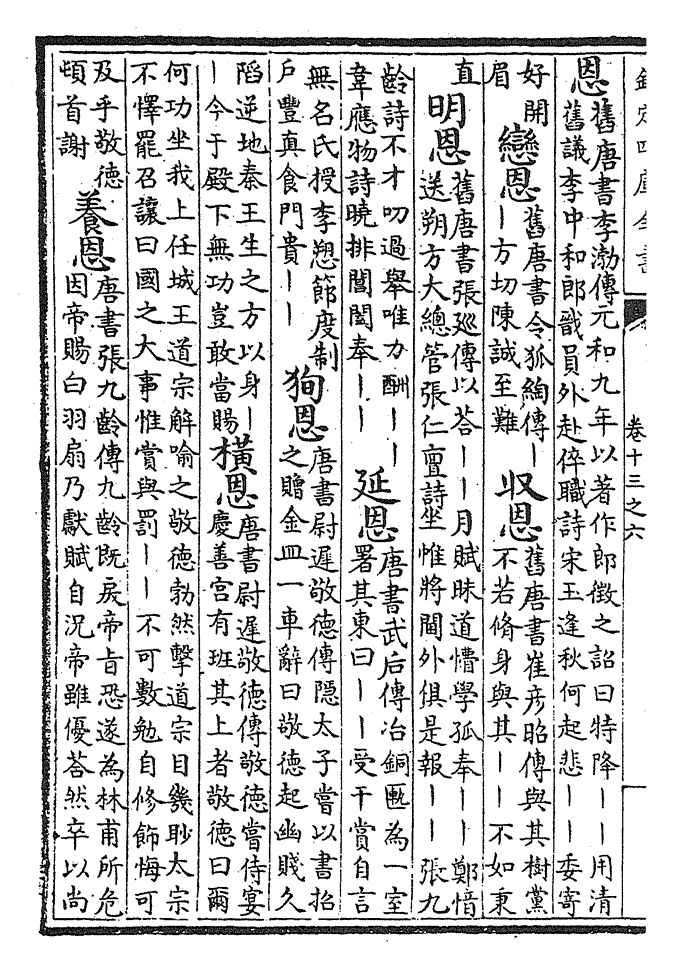 欽定四庫全書
卷十三之六
恩
舊唐書李渤傳元和九年以著作郎徵之詔曰特降丨丨用清
舊議李中和郎職員外赴倅職詩宋玉逢秋何起悲丨丨委寄
好開
眉
戀恩
舊唐書令狐綯傳丨
丨方切陳誠至難
収恩
舊唐書崔彥昭傳與其樹黨
不若脩身與其丨丨不如秉
直
明恩
舊唐書張廵傳以荅丨丨月賦昧道懵學孤奉丨丨鄭愔
送朔方大總管張仁亶詩坐惟將閫外俱是報丨丨張九
齡詩不才叨過舉唯力酬丨丨
韋應物詩曉排閶闔奉丨丨
延恩
唐書武后傳冶銅匭為一室
署其東曰丨丨受干賞自言
無名氏授李愬節度制
戶豐真食門貴丨丨
狥恩
唐書尉遲敬德傳隱太子嘗以書招
之贈金皿一車辭曰敬德起幽賤久
陷逆地秦王生之方以身丨
丨今于殿下無功豈敢當賜
橫恩
唐書尉遲敬德傳敬德嘗侍宴
慶善宫有班其上者敬德曰爾
何功坐我上任城王道宗解喻之敬德勃然擊道宗目幾眇太宗
不懌罷召讓曰國之大事惟賞與罰丨丨不可數勉自修飾悔可
及乎敬德
頓首謝
養恩
唐書張九齡傳九齡既戾帝旨恐遂為林甫所危
因帝賜白羽扇乃獻賦自況帝雖優荅然卒以尚